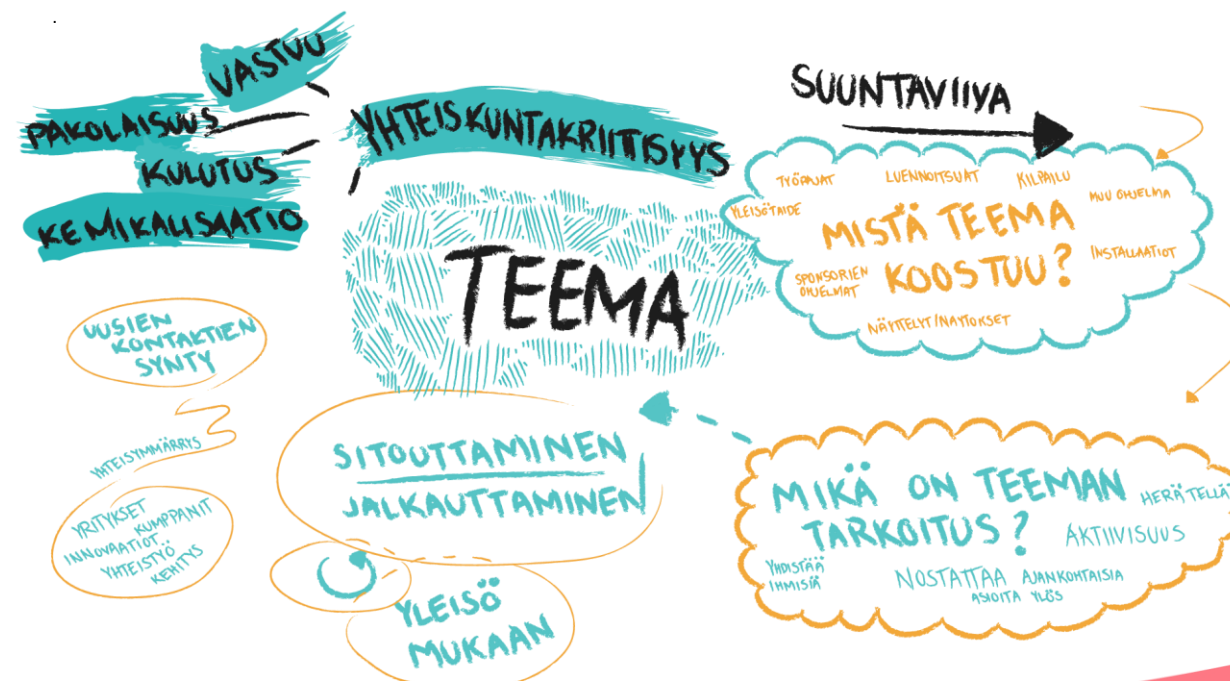 VASTUU
PAKOLAISUUS
KULUTUS
KEMIKALISAATIO
YHTEISKUNTAKRIITTISYYS
TEEMA
SUUNTAVIIVA
TYÖPAJAT
LUENNOITSIJAT
KILPAILU
MUU OHJELMA
YLEISÖTAIDE
MISTÄ TEEMA
KOOSTUU?
INSTALLAATIOT
SPONSORIEN
OHJELMAT
NÄYTTELYT/NÄYTÖKSET
UUSIEN
KONTAKTIEN
SYNTY
YHTEISYMMÄRRYS
YRITYKSET
KUMPPANIT
INNOVAATIOT
YHTEISTYÖ
KEHITYS
SITOUTTAMINEN
JALKAUTTAMINEN
YLEISÖ
MUKAAN
MIKÄ ON TEEMAN
TARKOITUS?
HERÄTELLÄ
AKTIIVISUUS
YHDISTÄÄ
IHMISIÄ
NOSTATTAA AJANKOHTAISIA
ASIOITA YLÖS